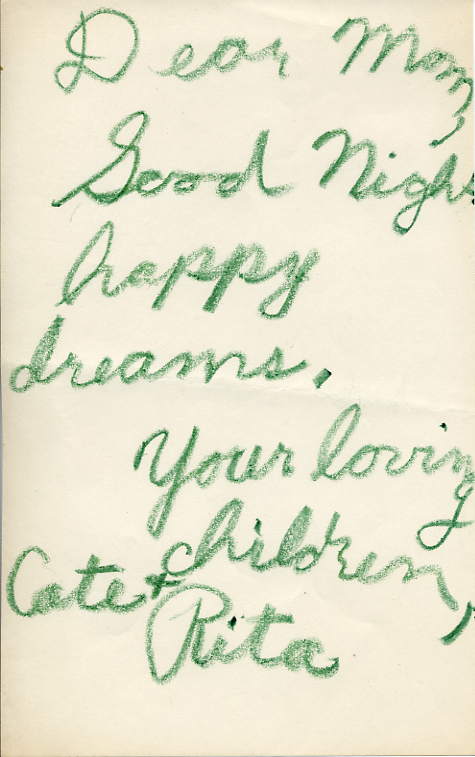 Dear Mom,
Good Night
happy
dreams.
Your loving
children,
Cate +
Rita